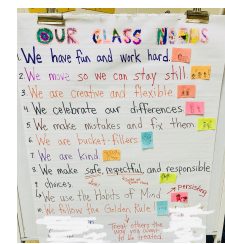 OUR CLASS NEEDS
1. We have fun and work hard.
2. We move so we can stay still
3. We are creative and flexible.
4. We celebrate our differences
5. We make mistakes and fix them
6. We are bucket-fillers
7. We are kind
8. We make safe, respectful, and responsible
choices.
9. We use the Habits of Mind
persisting
10. We follow the Golden Rule
Treat others the
way you want
to be treated